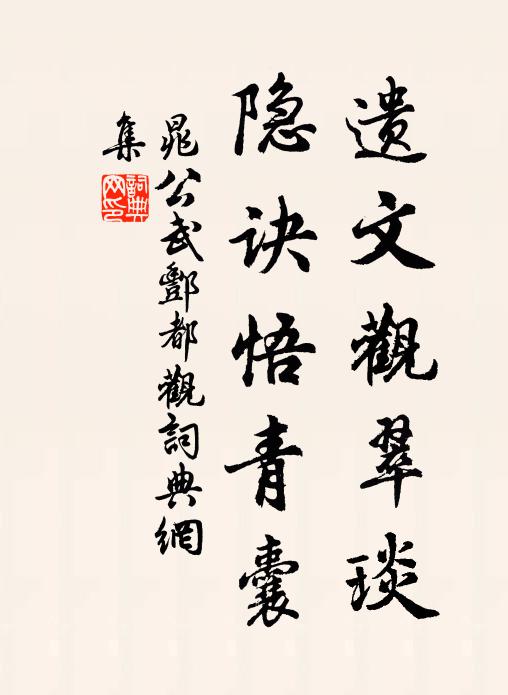 遗文觀翠琰
隐诀悟青囊
晁公武酆都觀詞典網
集
詞典網印